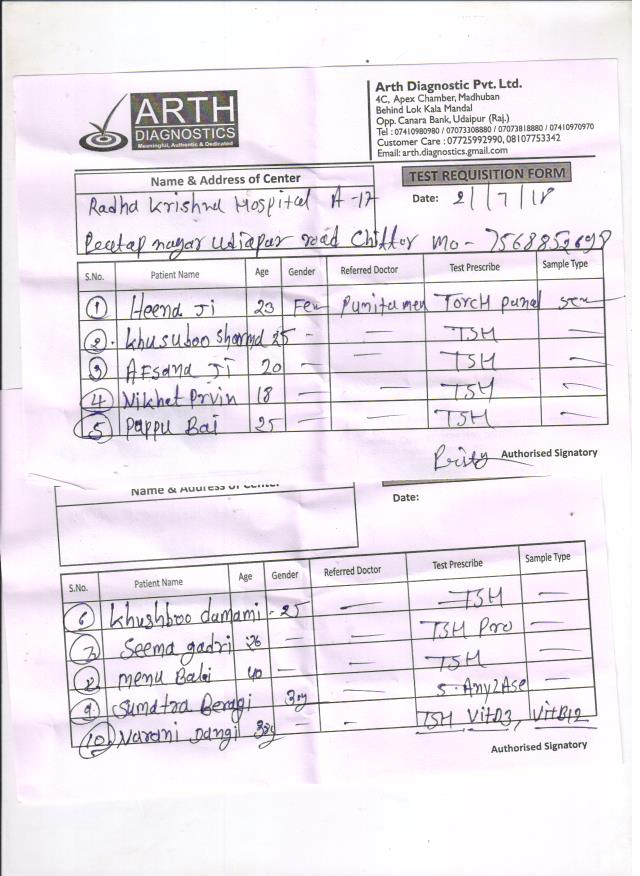 ARTH
DIAGNOSTICS
Meaningful, Authentic & Dedicated
Arth Diagnostic Pvt. Ltd.
4C, Apex Chamber, Madhuban
Behind Lok Kala Mandal
Opp. Canara Bank, Udaipur (Raj.)
Tel : 07410980980 / 07073308880 / 07073818880 / 07410970970
Customer Care : 07725992990, 08107753342
Email: arth.diagnostics.gmail.com
Name & Address of Center
TEST REQUISITION FORM
Radha Krishna Hospital A-17
Date: 2/7/18
Peetap nagar Udiapur road Chittor Mo - 7568852698
S.No. Patient Name Age Gender Referred Doctor Test Prescribe Sample Type
1 Heena Ji 23 Fem Torch Panel
2. Khusuboo Sharma 25 - - TSH -
3 Afsana Ji 20 - - TSH -
4 Nikhet Prvin 18 - - TSH -
5 Pappu Bai 25 - - TSH -
Authorised Signatory
Name & Address of Center
Date:
S.No. Patient Name Age Gender Referred Doctor Test Prescribe Sample Type
6 Khushboo damami - 25 - TSH -
7 Seema gadri 26 - - TSH -
8 Menu Bai 40 - - TSH -
9 Sumatra Beragi 3 - S. Amy2Ase -
10 Narani Dangi - - TSH VitD3, VitB12
Authorised Signatory